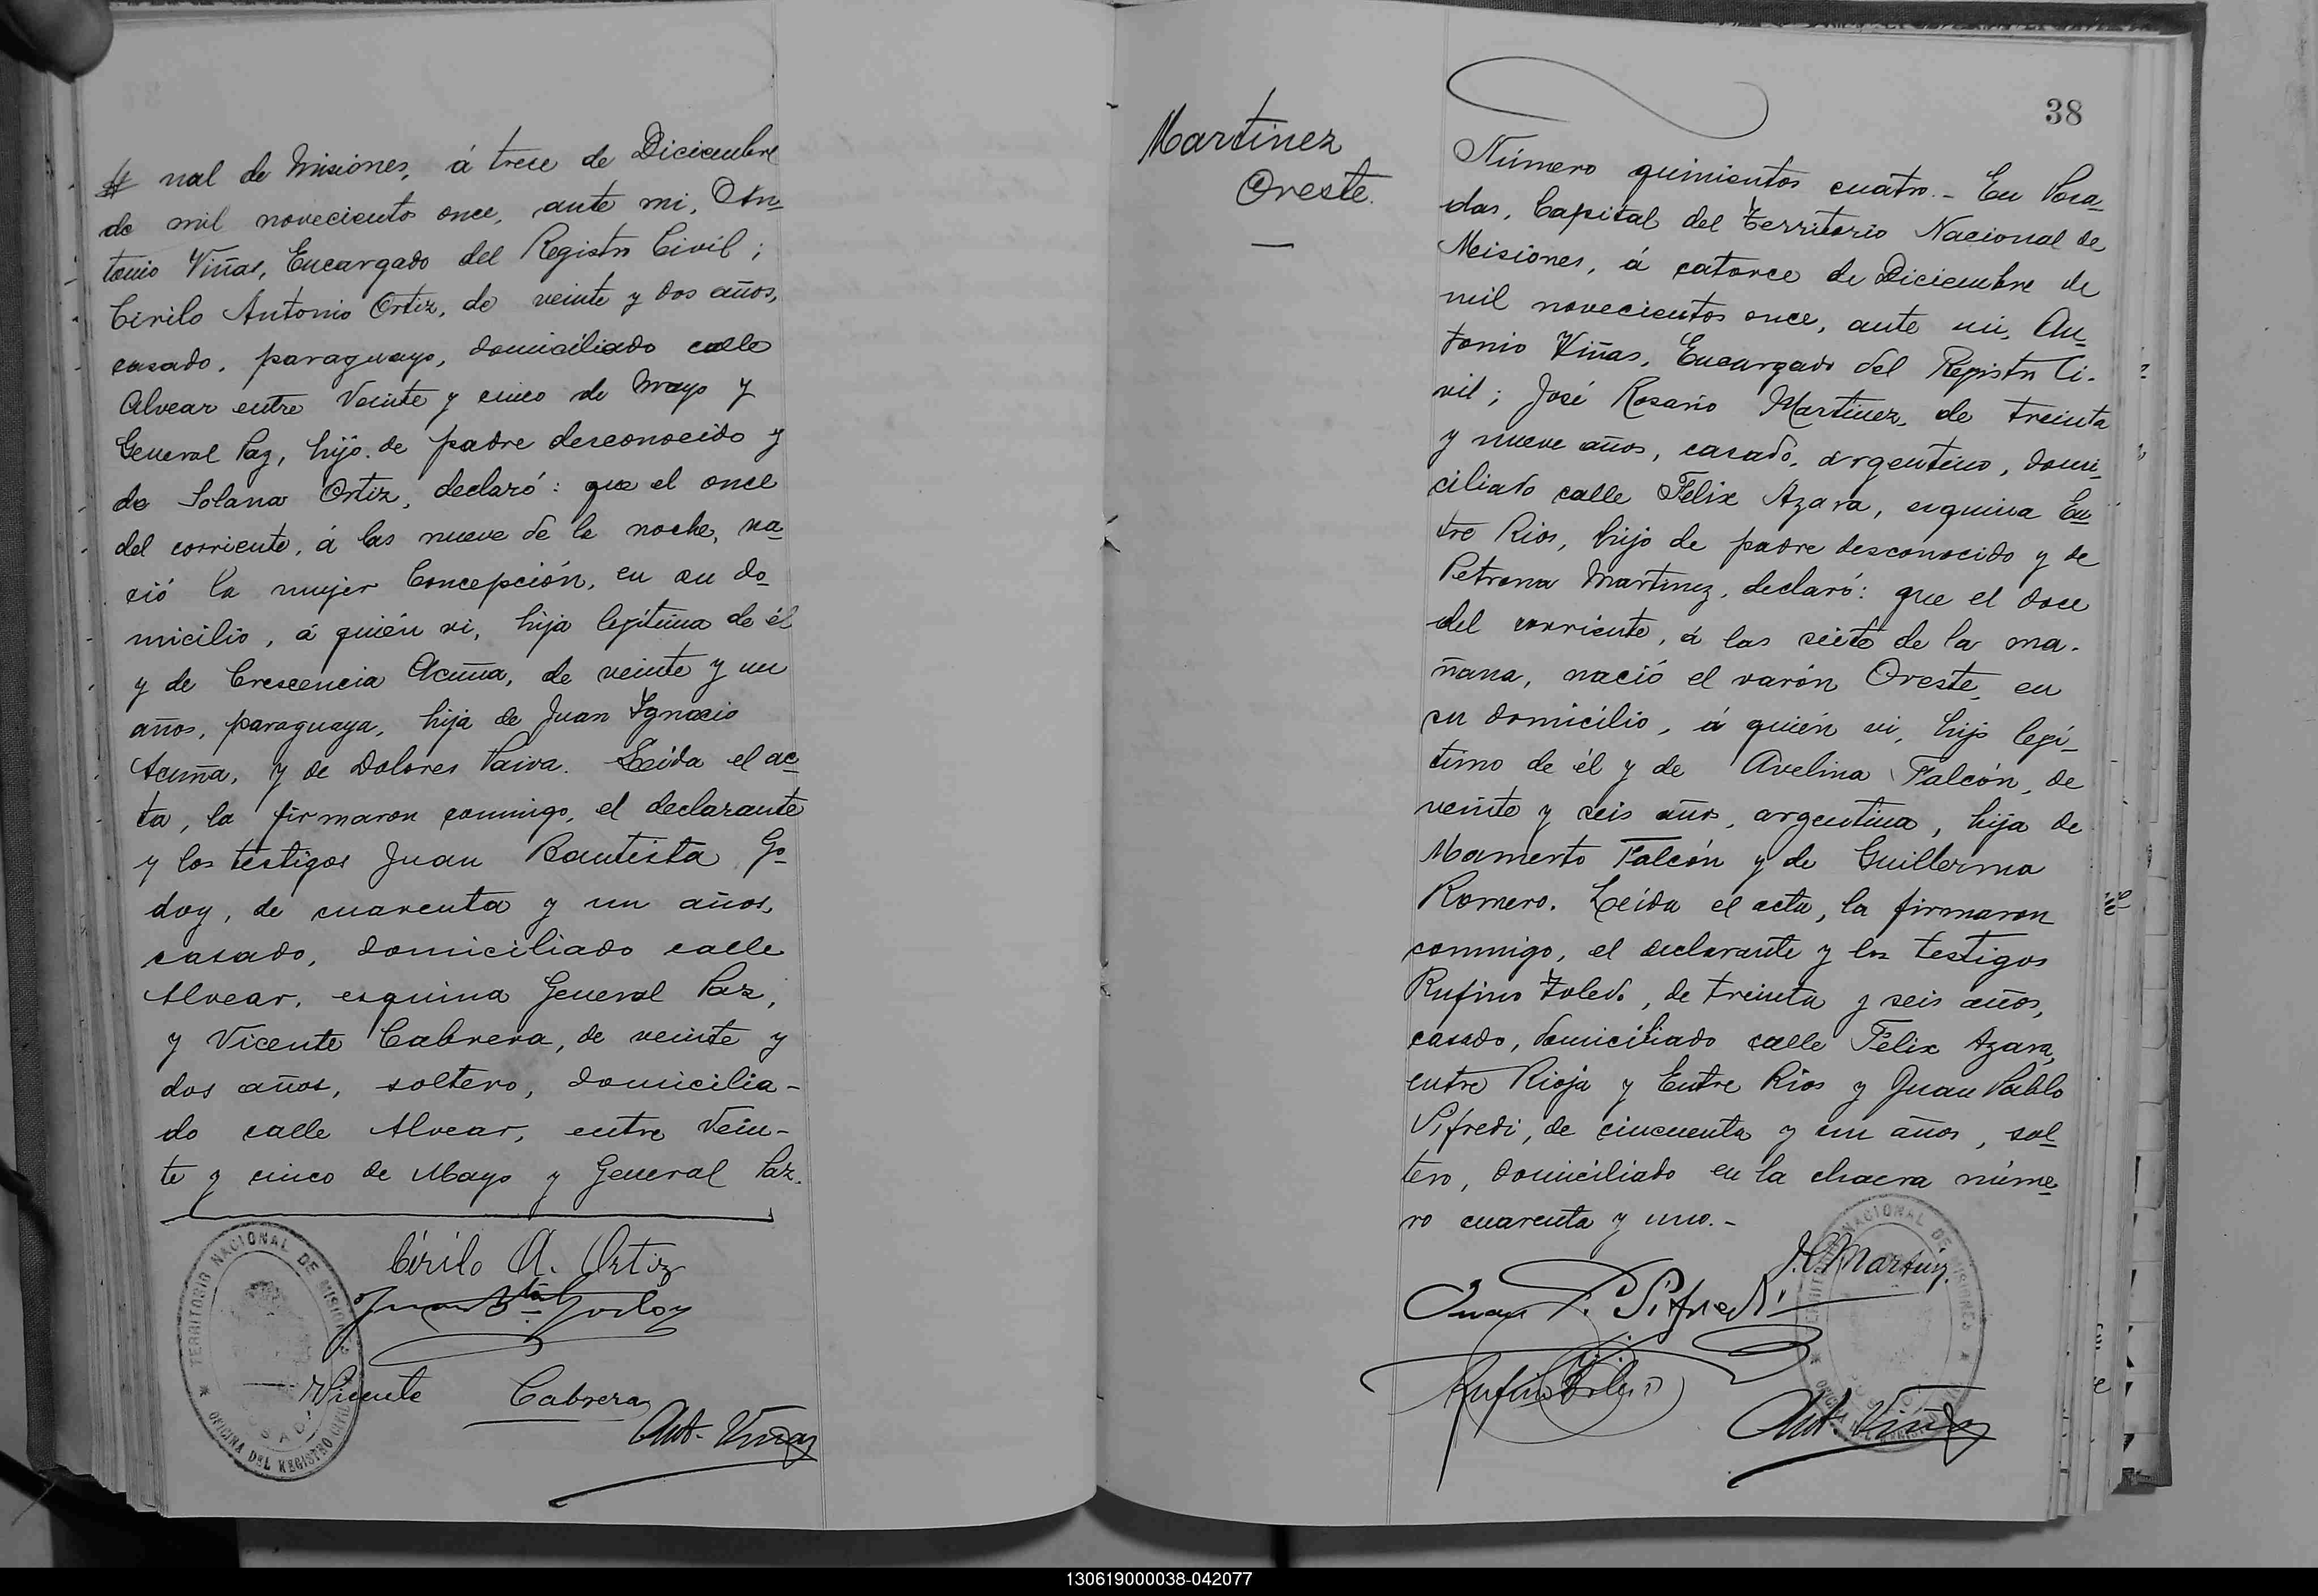 nal de Misiones, á trece de Diciembre
de mil novecientos once, ante mi, An-
tonio Viñas, Encargado del Registro Civil;
Cirilo Antonio Ortiz, de veinte y dos años,
casado, paraguayo, domiciliado calle
Alvear entre Veinte y cinco de Mayo y
General Paz, hijo de padre desconocido y
de Solana Ortiz, declaró: que el once
del corriente, á las nueve de la noche, na-
ció la mujer Concepción, en su do-
micilio, á quién vi, hija legítima de él
y de Crescencia Acuña, de veinte y un
años, paraguaya, hija de Juan Ignacio
Acuña, y de Dolores Paiva. Leida el ac-
ta, la firmaron conmigo, el declarante
y los testigos Juan Bautista Go-
doy, de cuarenta y un años,
casado, domiciliado calle
Alvear, esquina General Paz,
y Vicente Cabrera, de veinte y
dos años, soltero, domicilia-
do calle Alvear, entre Vein-
te y cinco de Mayo y General Paz.
Cirilo A. Ortiz
Juan Bta. Godoy
Vicente Cabrera
Ant. Viñas
TERRITORIO NACIONAL DE MISIONES
OFICINA DEL REGISTRO CIVIL
38
Martinez
Oreste.
Número quinientos cuatro.- En Posa-
das, Capital del Territorio Nacional de
Misiones, á catorce de Diciembre de
mil novecientos once, ante mi, An-
tonio Viñas, Encargado del Registro Ci-
vil; José Rosario Martinez, de treinta
y nueve años, casado, argentino, domi-
ciliado calle Felix Azara, esquina En-
tre Rios, hijo de padre desconocido y de
Petrona Martinez, declaró: que el doce
del corriente, á las siete de la ma-
ñana, nació el varón Oreste, en
su domicilio, á quién vi, hijo legí-
timo de él y de Avelina Falcón, de
veinte y seis años, argentina, hija de
Mamerto Falcón y de Guillerma
Romero. Leida el acta, la firmaron
conmigo, el declarante y los testigos
Rufino Toledo, de treinta y seis años,
casado, domiciliado calle Felix Azara,
entre Rioja y Entre Rios y Juan Pablo
Pifredi, de cincuenta y un años, sol-
tero, domiciliado en la chacra núme-
ro cuarenta y uno.-
Martinez
Juan P. Pifredi
Rufino Toledo
Ant. Viñas
130619000038-042077